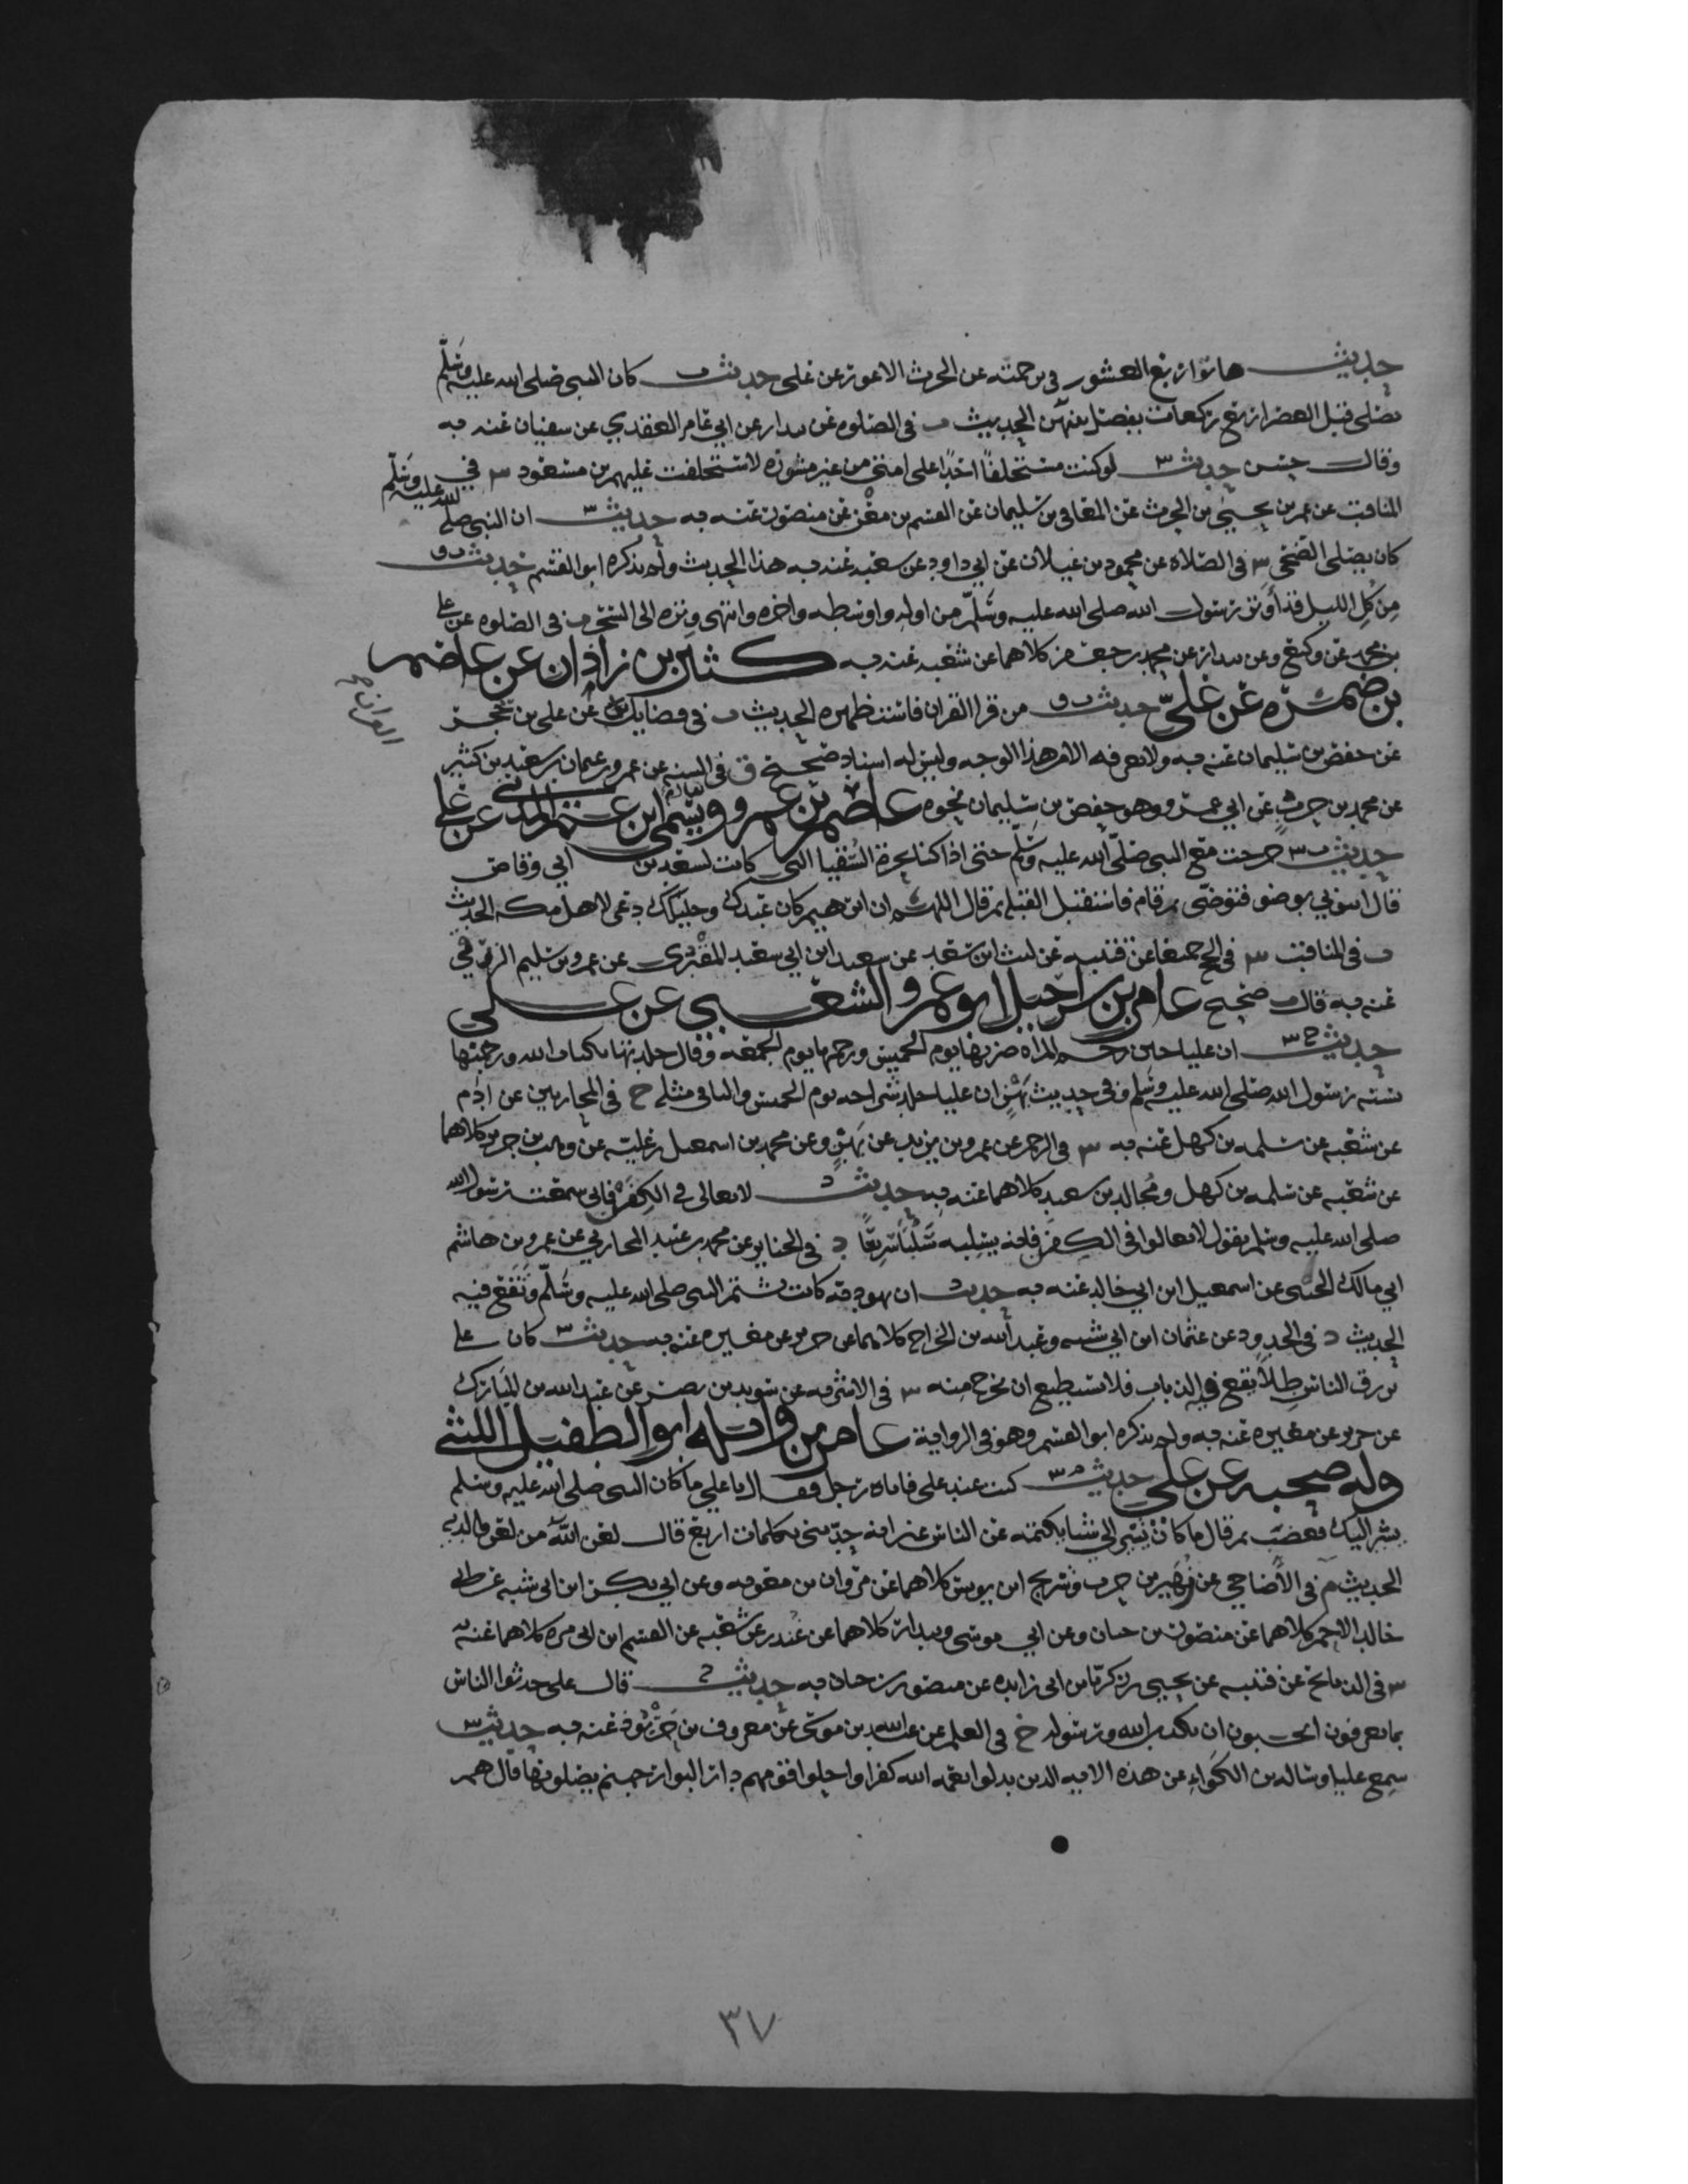 حديث هاتوا ربع العشور في ترجمته عن الحرث الاعور عن علي حديث ت كان النبي صلى الله عليه وسلم
يصلي قبل العصر اربع ركعات يفصل بينهن الحديث ت في الصلوه عن بندار عن ابي عامر العقدي عن سفيان عنه به
وقال حسن حديث لو كنت مستخلفا احدا على امتي من غير مشوره لاستخلفت عليهم بن مسعود س في
المناقب عن عمر بن يحيى بن الحرث عن المعافى بن سليمان عن القسم بن معن عن منصور عنه به حديث س ان النبي صلى الله عليه وسلم
كان يصلي الضحى س في الصلاة عن محمود بن غيلان عن ابي داود عن شعبه عنه به هذا الحديث ولم يذكره ابو القسم حديث ق
من كل الليل قد أوتر رسول الله صلى الله عليه وسلم من اوله واوسطه واخره وانتهى وتره الى السحر ق في الصلوه عن علي
بن محمد عن وكيع وعن بندار عن محمد بن جعفر كلاهما عن شعبه عنه به كثير بن زاذان عن عاصم
بن ضمرة عن علي حديث ت ق من قرا القران فاستظهره الحديث ت في فضايل القران عن علي بن حجر
عن حفص بن سليمان عنه به ولا نعرفه الا من هذا الوجه وليس له اسناد صحيح ق في السنه عن عمرو بن عثمان بن سعيد بن كثير
عن محمد بن حرب عن ابي عمرو وهو حفص بن سليمان نحوه عاصم بن عمرو ويسمى ابن عمر المدني عن علي
حديث ت س خرجت مع النبي صلى الله عليه وسلم حتى اذا كنا بحرة السقيا التي كانت لسعد بن ابي وقاص
قال ايتوني بوضو فتوضى ثم قام فاستقبل القبله ثم قال اللهم ان ابرهيم كان عبدك وخليلك دعى لاهل مكه الحديث
ت في المناقب س في الحج جميعا عن قتيبه عن ليث ابن سعد عن سعيد ابن ابي سعيد المقبري عن عمرو بن سليم الزرقي
عنه به قال ت صحيح عامر بن شراحيل ابو عمرو الشعبي عن علي
حديث خ س ان عليا حين رجم المراه ضربها يوم الخميس ورجمها يوم الجمعه وقال جلدتها بكتاب الله ورجمتها
بسنه رسول الله صلى الله عليه وسلم وفي حديث بهز ان عليا جلد شراحه يوم الخميس والباقي مثله خ في المحاربين عن ادم
عن شعبه عن سلمه بن كهيل عنه به س في الرجم عن عمرو بن يزيد عن بهز وعن محمد بن اسمعيل بن عليه عن وهب بن جرير كلاهما
عن شعبه عن سلمه بن كهيل ومجالد بن سعيد كلاهما عنه به حديث د لا تغالي في الكفن فاني سمعت رسول الله
صلى الله عليه وسلم يقول لا تغالوا في الكفن فانه يسلبه سلبا سريعا د في الجنايز عن محمد بن عبيد المحاربي عن عمرو بن هاشم
ابي مالك الجنبي عن اسمعيل ابن ابي خالد عنه به حديث د ان يهوديه كانت تشتم النبي صلى الله عليه وسلم وتقع فيه
الحديث د في الحدود عن عثمان ابن ابي شيبه وعبد الله بن الجراح كلاهما عن جرير عن مغيره عنه به حديث س كان علي
يرزق الناس طلا يقع فيه الذباب فلا يستطيع ان يخرج منه س في الاشربه عن سويد بن نصر عن عبد الله بن المبارك
عن جرير عن مغيره عنه به ولم يذكره ابو القسم وهو في الرواية عامر بن واثله ابو الطفيل الليثي
وله صحبه عن علي حديث م س كنت عند علي فاتاه رجل فقال يا علي ما كان النبي صلى الله عليه وسلم
يسر اليك فغضب ثم قال ما كان يسر الي شيا يكتمه عن الناس غير انه حدثني بكلمات اربع قال لعن الله من لعن والديه
الحديث م في الأضاحي عن زهير بن حرب وسريج ابن يونس كلاهما عن مروان بن معويه وعن ابي بكر ابن ابي شيبه عن ابي
خالد الاحمر كلاهما عن منصور بن حيان وعن ابي موسى وبندار كلاهما عن غندر عن شعبه عن القسم ابن ابي بزه كلاهما عنه به
س في الذبايح عن قتيبه عن يحيى بن زكريا بن ابي زايده عن منصور بن حيان به حديث خ قال علي حدثوا الناس
بما يعرفون اتحبون ان يكذب الله ورسوله خ في العلم عن عبيد الله بن موسى عن معروف بن خربوذ عنه به حديث س
سمع عليا وساله بن الكواء عن هذه الايه الذين بدلوا نعمه الله كفرا واحلوا قومهم دار البوار جهنم يصلونها قال هم
٣٧